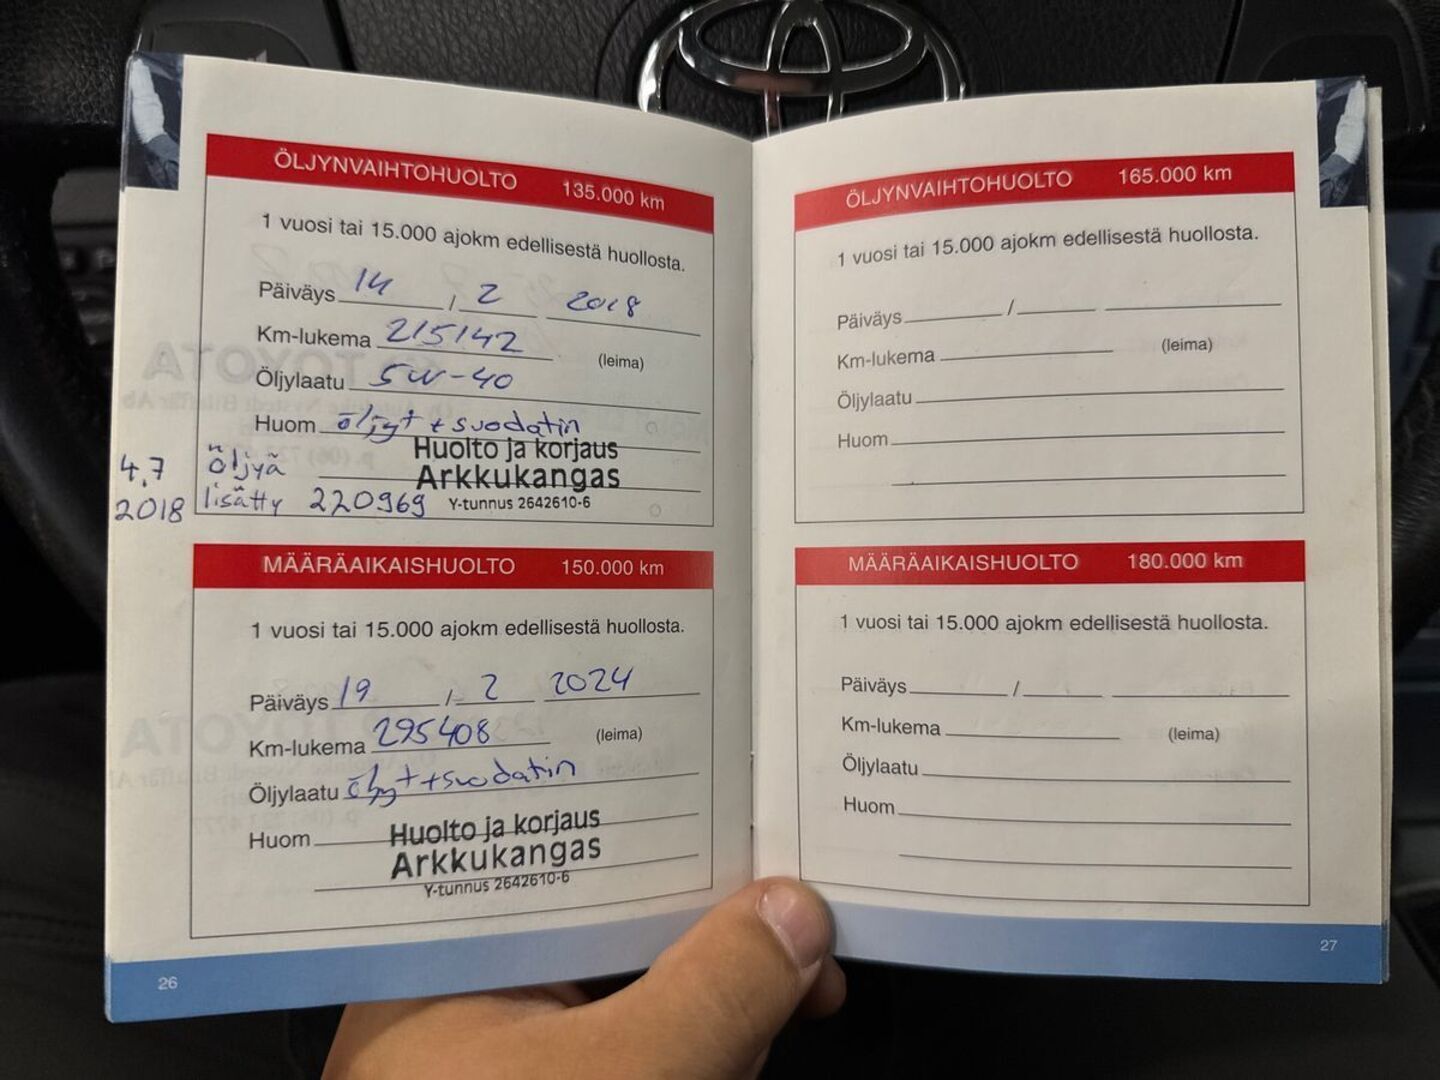 ÖLJYNVAIHTOHUOLTO 135.000 km
1 vuosi tai 15.000 ajokm edellisestä huollosta.
Päiväys 14 / 2 2018
Km-lukema 215142
(leima)
Öljylaatu 5W-40
Huom öljyt + suodatin
Huolto ja korjaus
Arkkukangas
Y-tunnus 2642610-6
4.7 öljyä
2018 lisätty 220969
MÄÄRÄAIKAISHUOLTO 150.000 km
1 vuosi tai 15.000 ajokm edellisestä huollosta.
Päiväys 19 / 2 2024
Km-lukema 295408
(leima)
Öljylaatu öljyt + suodatin
Huom
Huolto ja korjaus
Arkkukangas
Y-tunnus 2642610-6
26
ÖLJYNVAIHTOHUOLTO 165.000 km
1 vuosi tai 15.000 ajokm edellisestä huollosta.
Päiväys /
Km-lukema (leima)
Öljylaatu
Huom
MÄÄRÄAIKAISHUOLTO 180.000 km
1 vuosi tai 15.000 ajokm edellisestä huollosta.
Päiväys /
Km-lukema (leima)
Öljylaatu
Huom
27